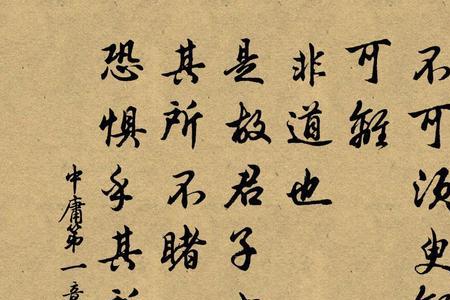 不可须臾
可離
非道也
是故君子
其所不睹
恐惧乎其所
中庸第一章